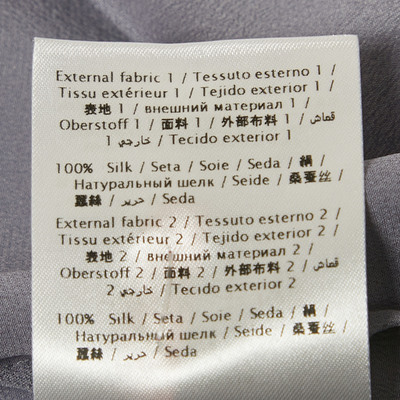 External fabric 1 / Tessuto esterno 1 /
Tissu extérieur 1 / Tejido exterior 1 /
表地 1 / внешний материал 1 /
Oberstoff 1 / 面料 1 / 外部布料 1 / قماش
خارجي 1 / Tecido exterior 1
100% Silk / Seta / Soie / Seda / 絹 /
Натуральный шелк / Seide / 桑蚕丝 /
蠶絲 / حرير / Seda
External fabric 2 / Tessuto esterno 2 /
Tissu extérieur 2 / Tejido exterior 2 /
表地 2 / внешний материал 2 /
Oberstoff 2 / 面料 2 / 外部布料 2 / قماش
خارجي 2 / Tecido exterior 2
100% Silk / Seta / Soie / Seda / 絹 /
Натуральный шелк / Seide / 桑蚕丝 /
蠶絲 / حرير / Seda